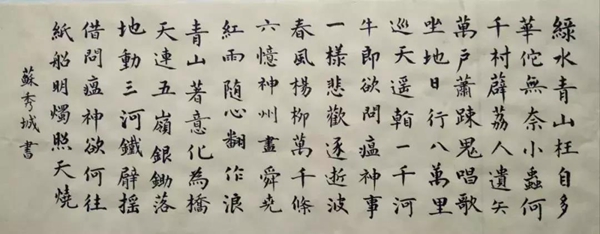 綠水青山枉自多
華佗無奈小蟲何
千村薜荔人遺矢
萬戶蕭疎鬼唱歌
坐地日行八萬里
巡天遥翰一千河
牛郎欲問瘟神事
一樣悲歡逐逝波
春風楊柳萬千條
六憶神州盡舜堯
紅雨隨心翻作浪
青山著意化為橋
天連五嶺銀鋤落
地動三河鐵臂摇
借問瘟神欲何往
紙船明燭照天燒
蘇秀城書